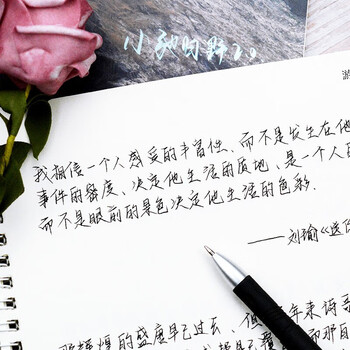 我相信一个人感受的丰富性、而不是发生在他
事件的密度、决定他生活的质地,是一个人
而不是眼前的景色决定他生活的色彩.
——刘瑜《送
辉煌的盛唐早已过去、但 年来诗
而那